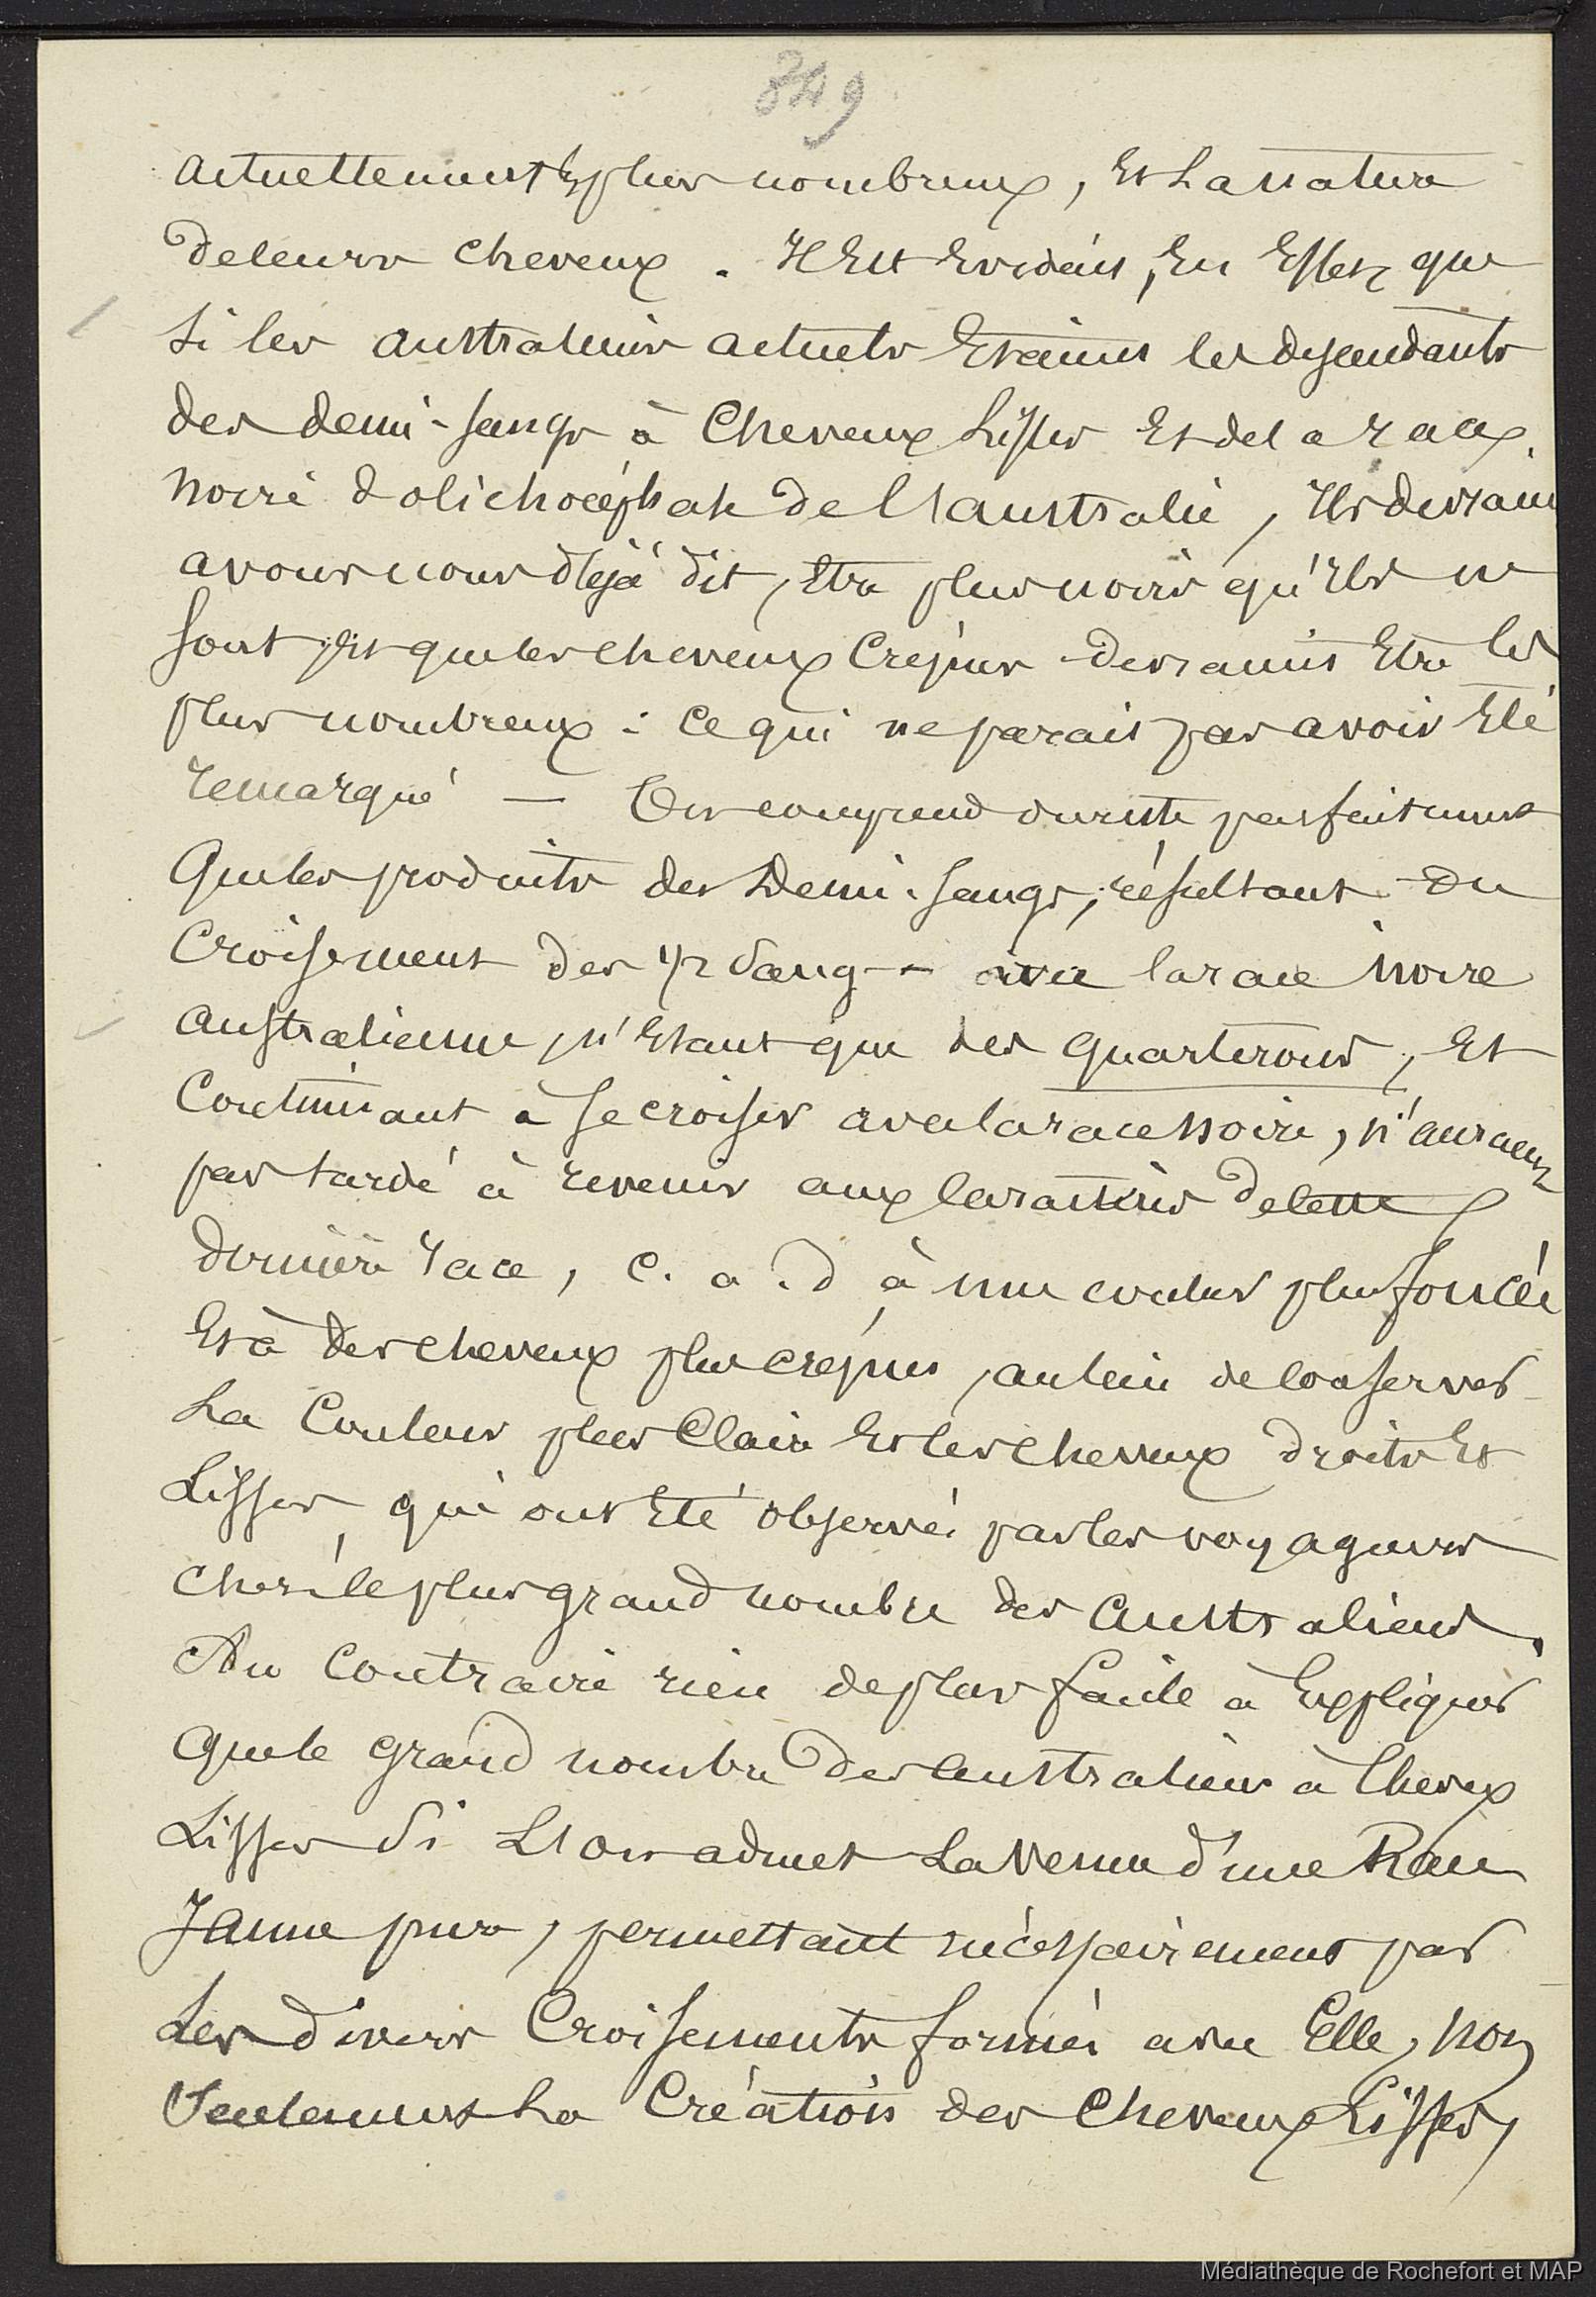 849
actuellement les plus nombreux, et la nature
de leurs cheveux. Il est évident, en effet, que
si les australiens actuels étaient les descendants
des demi-sangs à cheveux lisses et de la race
noire dolichocéphale de l'australie, ils devraient
avons nous déjà dit, être plus noirs qu'ils ne
sont, et que les cheveux crépus devraient être les
plus nombreux : ce qui ne parait pas avoir été
remarqué — On comprend du reste parfaitement
que les produits des Demi-sangs, résultant du
croisement des 1/2 sang -- avec la race noire
australienne, n'étant que des quarterons, et
continuant à se croiser avec la race noire, n'auraient
pas tardé à revenir aux caractères de cette
dernière race, c. a. d à une couleur plus foncée
et à des cheveux plus crépus, au lieu de conserver
la couleur plus claire et les cheveux droits et
lisses, qui ont été observés par les voyageurs
chez le plus grand nombre des australiens.
Au contraire rien de plus facile à expliquer
que le grand nombre des australiens à cheveux
lisses si l'on admet la venue d'une Race
Jaune pure, permettant nécessairement par
les divers croisements formés avec Elle, non
seulement la création des cheveux lisses,
Médiathèque de Rochefort et MAP